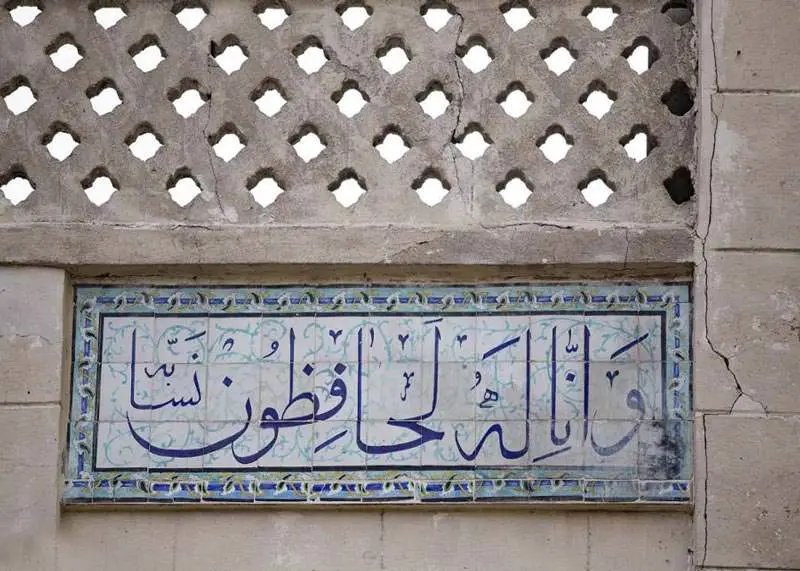 وَاِنَّا لَهُ لَحَافِظُونَ